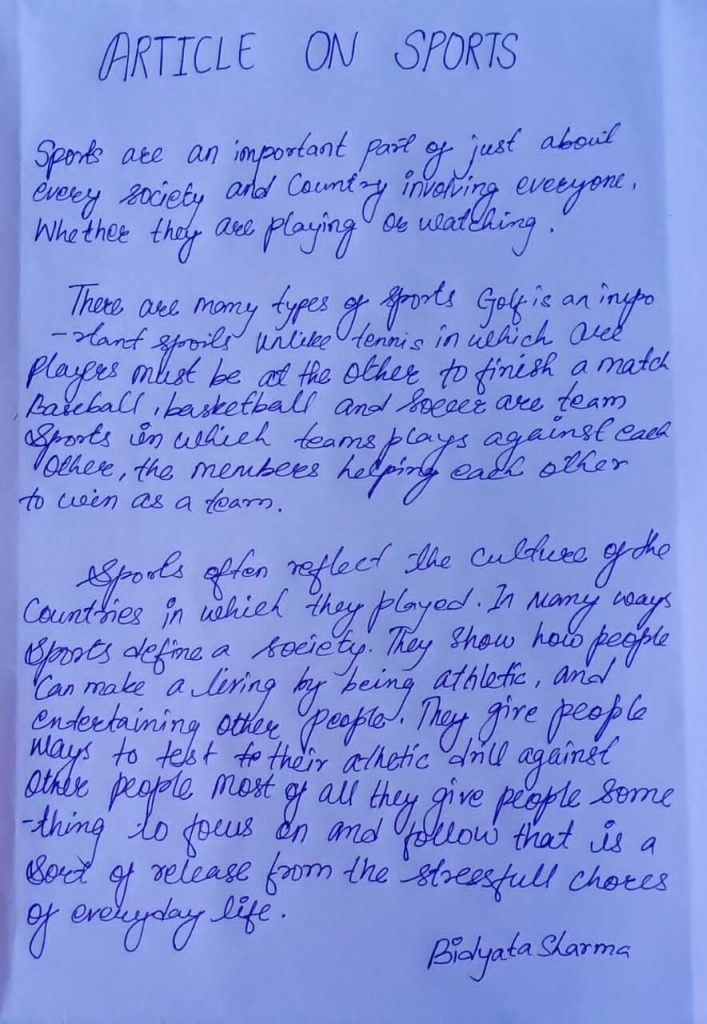 ARTICLE ON SPORTS
Sports are an important part of just about
every society and Country involving everyone.
Whether they are playing or watching.
There are many types of sports Golf is an impo
-rtant sports unlike tennis in which are
players must be at the other to finish a match
Baseball, basketball and Soccer are team
Sports in which teams plays against each
Other, the members helping each other
to win as a team.
Sports often reflect the culture of the
Countries in which they played. In Many ways
Sports define a society. They show how people
Can make a living by being athletic, and
entertaining other people. They give people
Ways to test to their athetic drill against
Other people Most of all they give people Some
-thing to focus on and follow that is a
Sort of release from the stressfull chores
of everyday life.
Bidyata Sharma